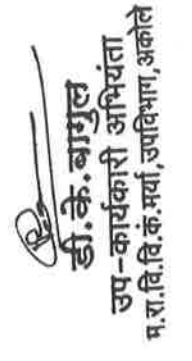 डी.के.बागुल
उप-कार्यकारी अभियंता
म.रा.वि.वि.कं.मर्या,उपविभाग,अकोले